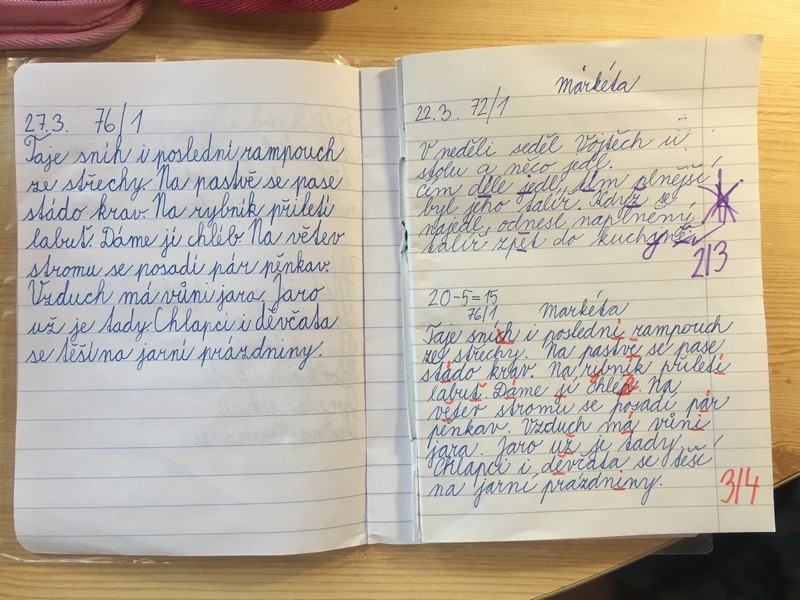 27.3. 76/1
Taje sníh i poslední rampouch
ze střechy. Na pastvě se pase
stádo krav. Na rybník přiletí
labuť. Dáme jí chléb. Na větev
stromu se posadí pár pěnkav.
Vzduch má vůni jara. Jaro
už je tady. Chlapci i děvčata
se těší na jarní prázdniny.
Markéta
22.3. 72/1
V neděli seděl Vojtěch u
stolu a něco jedl.
čím déle jedl, tím plnější
byl jeho talíř. Když se
najedl, odnesl naplněný
talíř zpět do kuchyně.
2/3
20-5=15
76/1 Markéta
Taje sních i poslední rampouch
ze střechy. Na pastvě se pase
stádo krav. Na rybník přiletí
labuť. Dáme jí chléb. Na
větev stromu se posadí pár
pěnkav. Vzduch má vůni
jara. Jaro už je tady!
Chlapci i děvčata se těší
na jarní prázdniny.
3/4